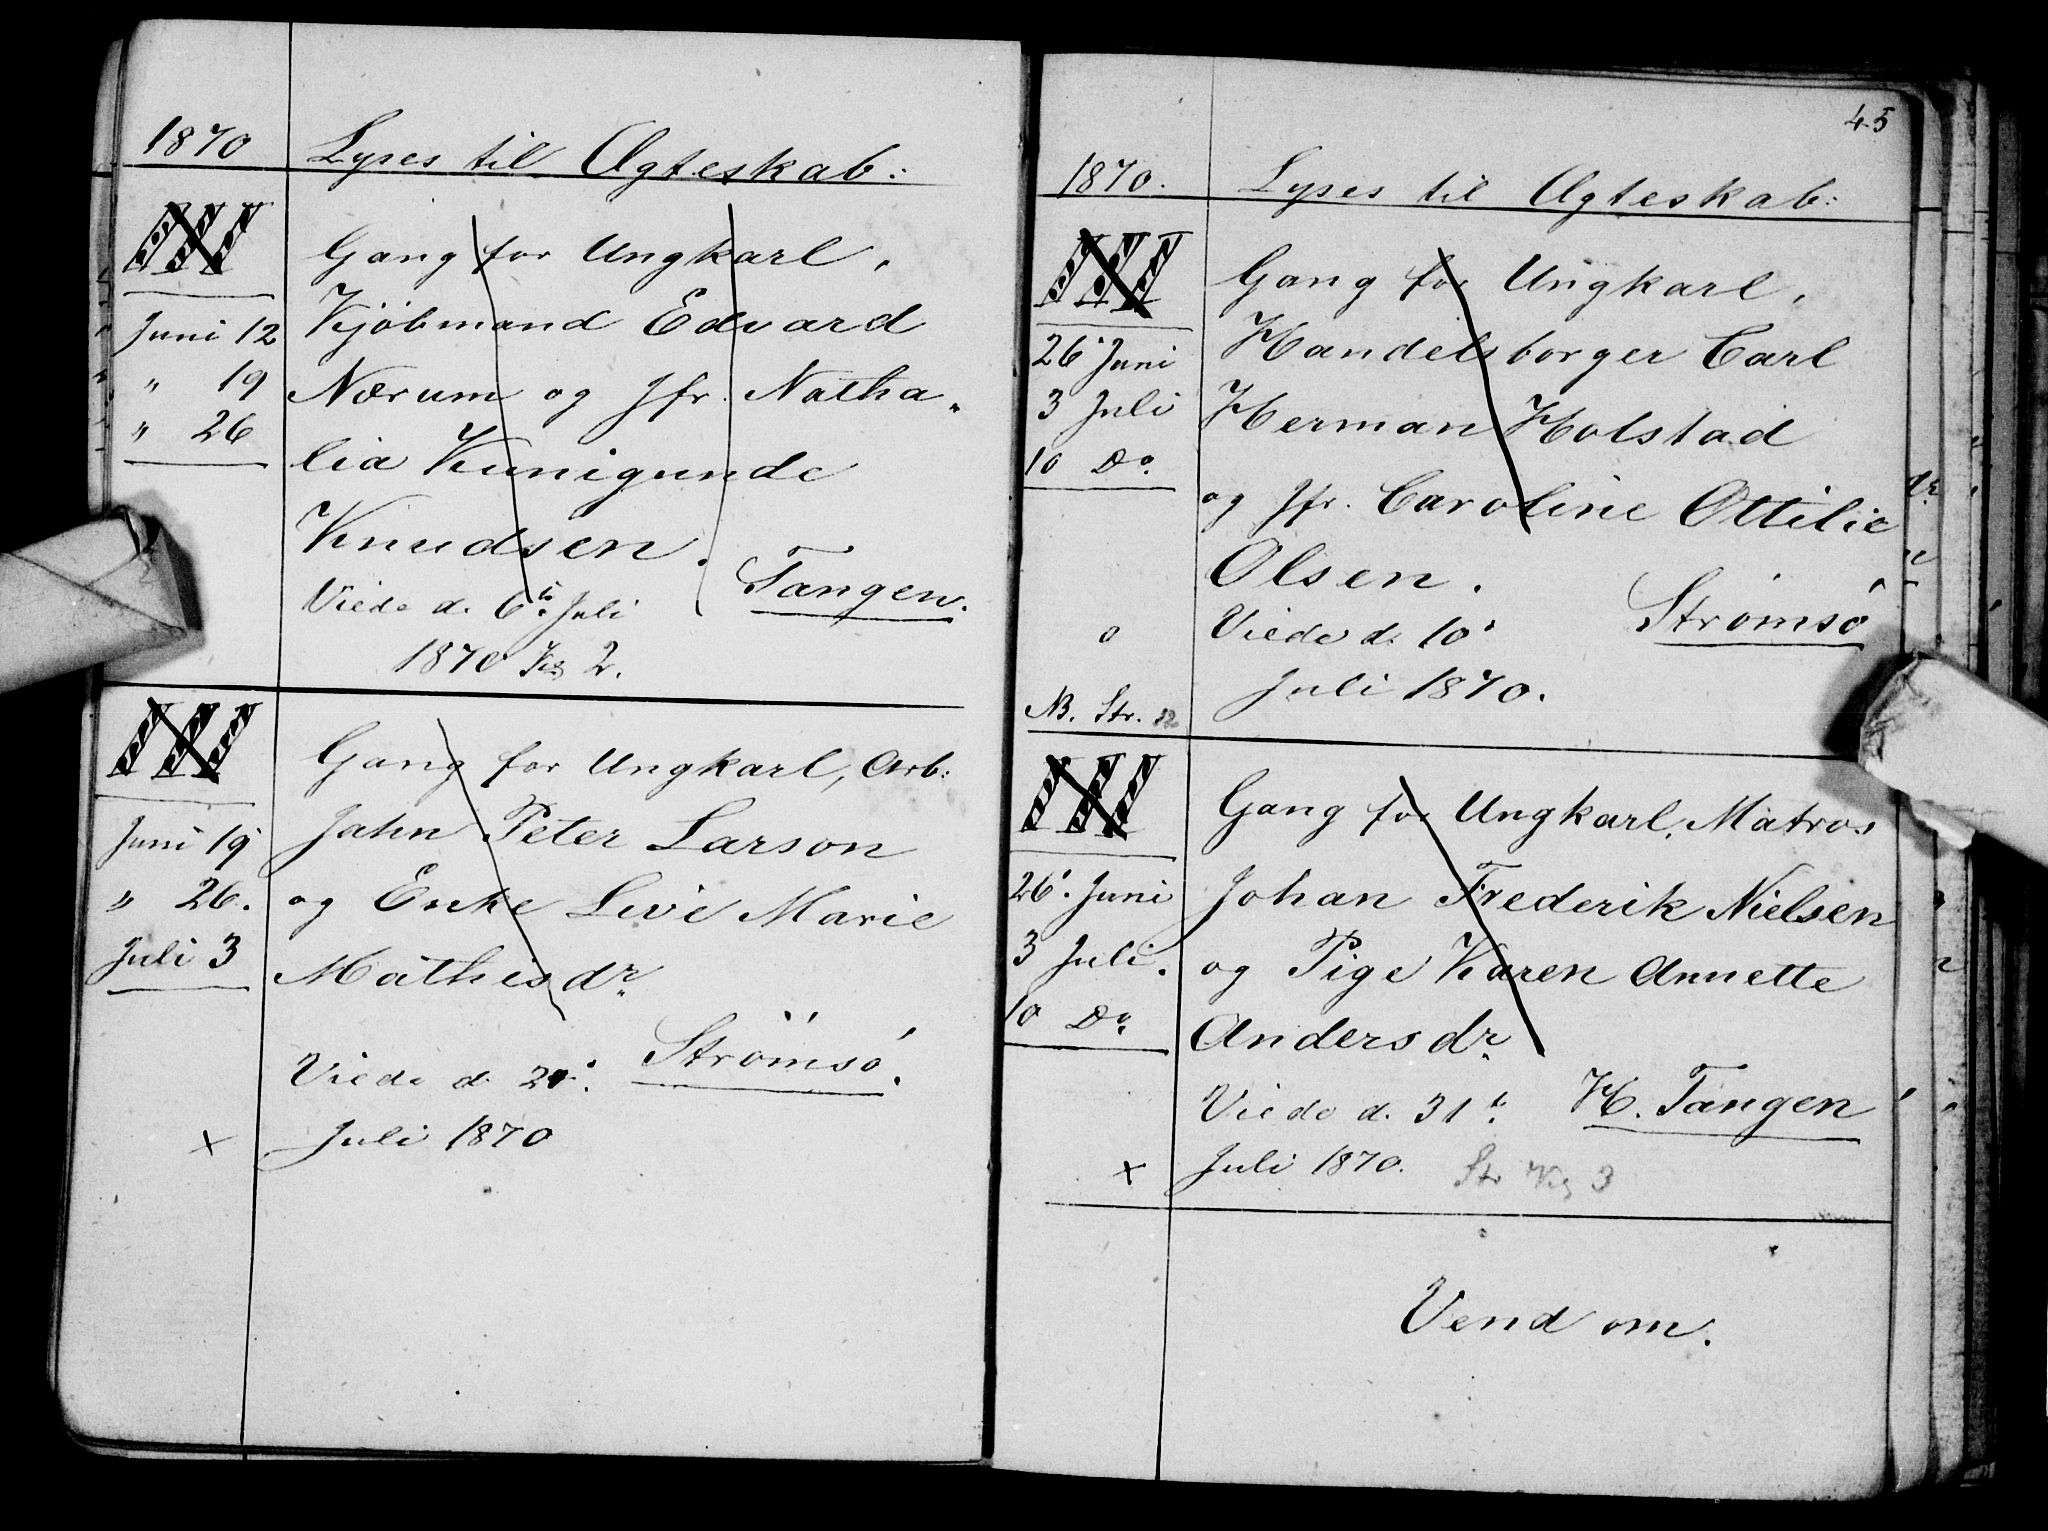 1870 Lyses til Ægteskab:
I II III Gang for Ungkarl,
Juni 12 Kjöbmand Edvard
" 19 Nærum og Jfr. Natha„
" 26 lia Kunigunde
Knudsen.
Viede d. 6te Juli Tangen.
1870 2.
I II III Gang for Ungkarl, Arb:
Juni 19 Jahn Peter Larson
" 26. og Enke Live Marie
Juli 3 Mathisdr.
Viede d. Strömsö.
x Juli 1870
45
1870. Lyses til Ægteskab:
I II III Gang for Ungkarl,
26 Juni Handelsborger Carl
3 Juli Herman Holstad
10 Do. og Jfr. Caroline Ottilie
Olsen.
o Viede d. 10 Strömsö
Juli 1870.
NB. Str. 12
I II III Gang for Ungkarl, Matros
26. Juni Johan Frederik Nielsen
3 Juli. og Pige Karen Annette
10 Do. Andersdr.
Viede d. 31te H. Tangen
x Juli 1870. Str 3
Vend om.